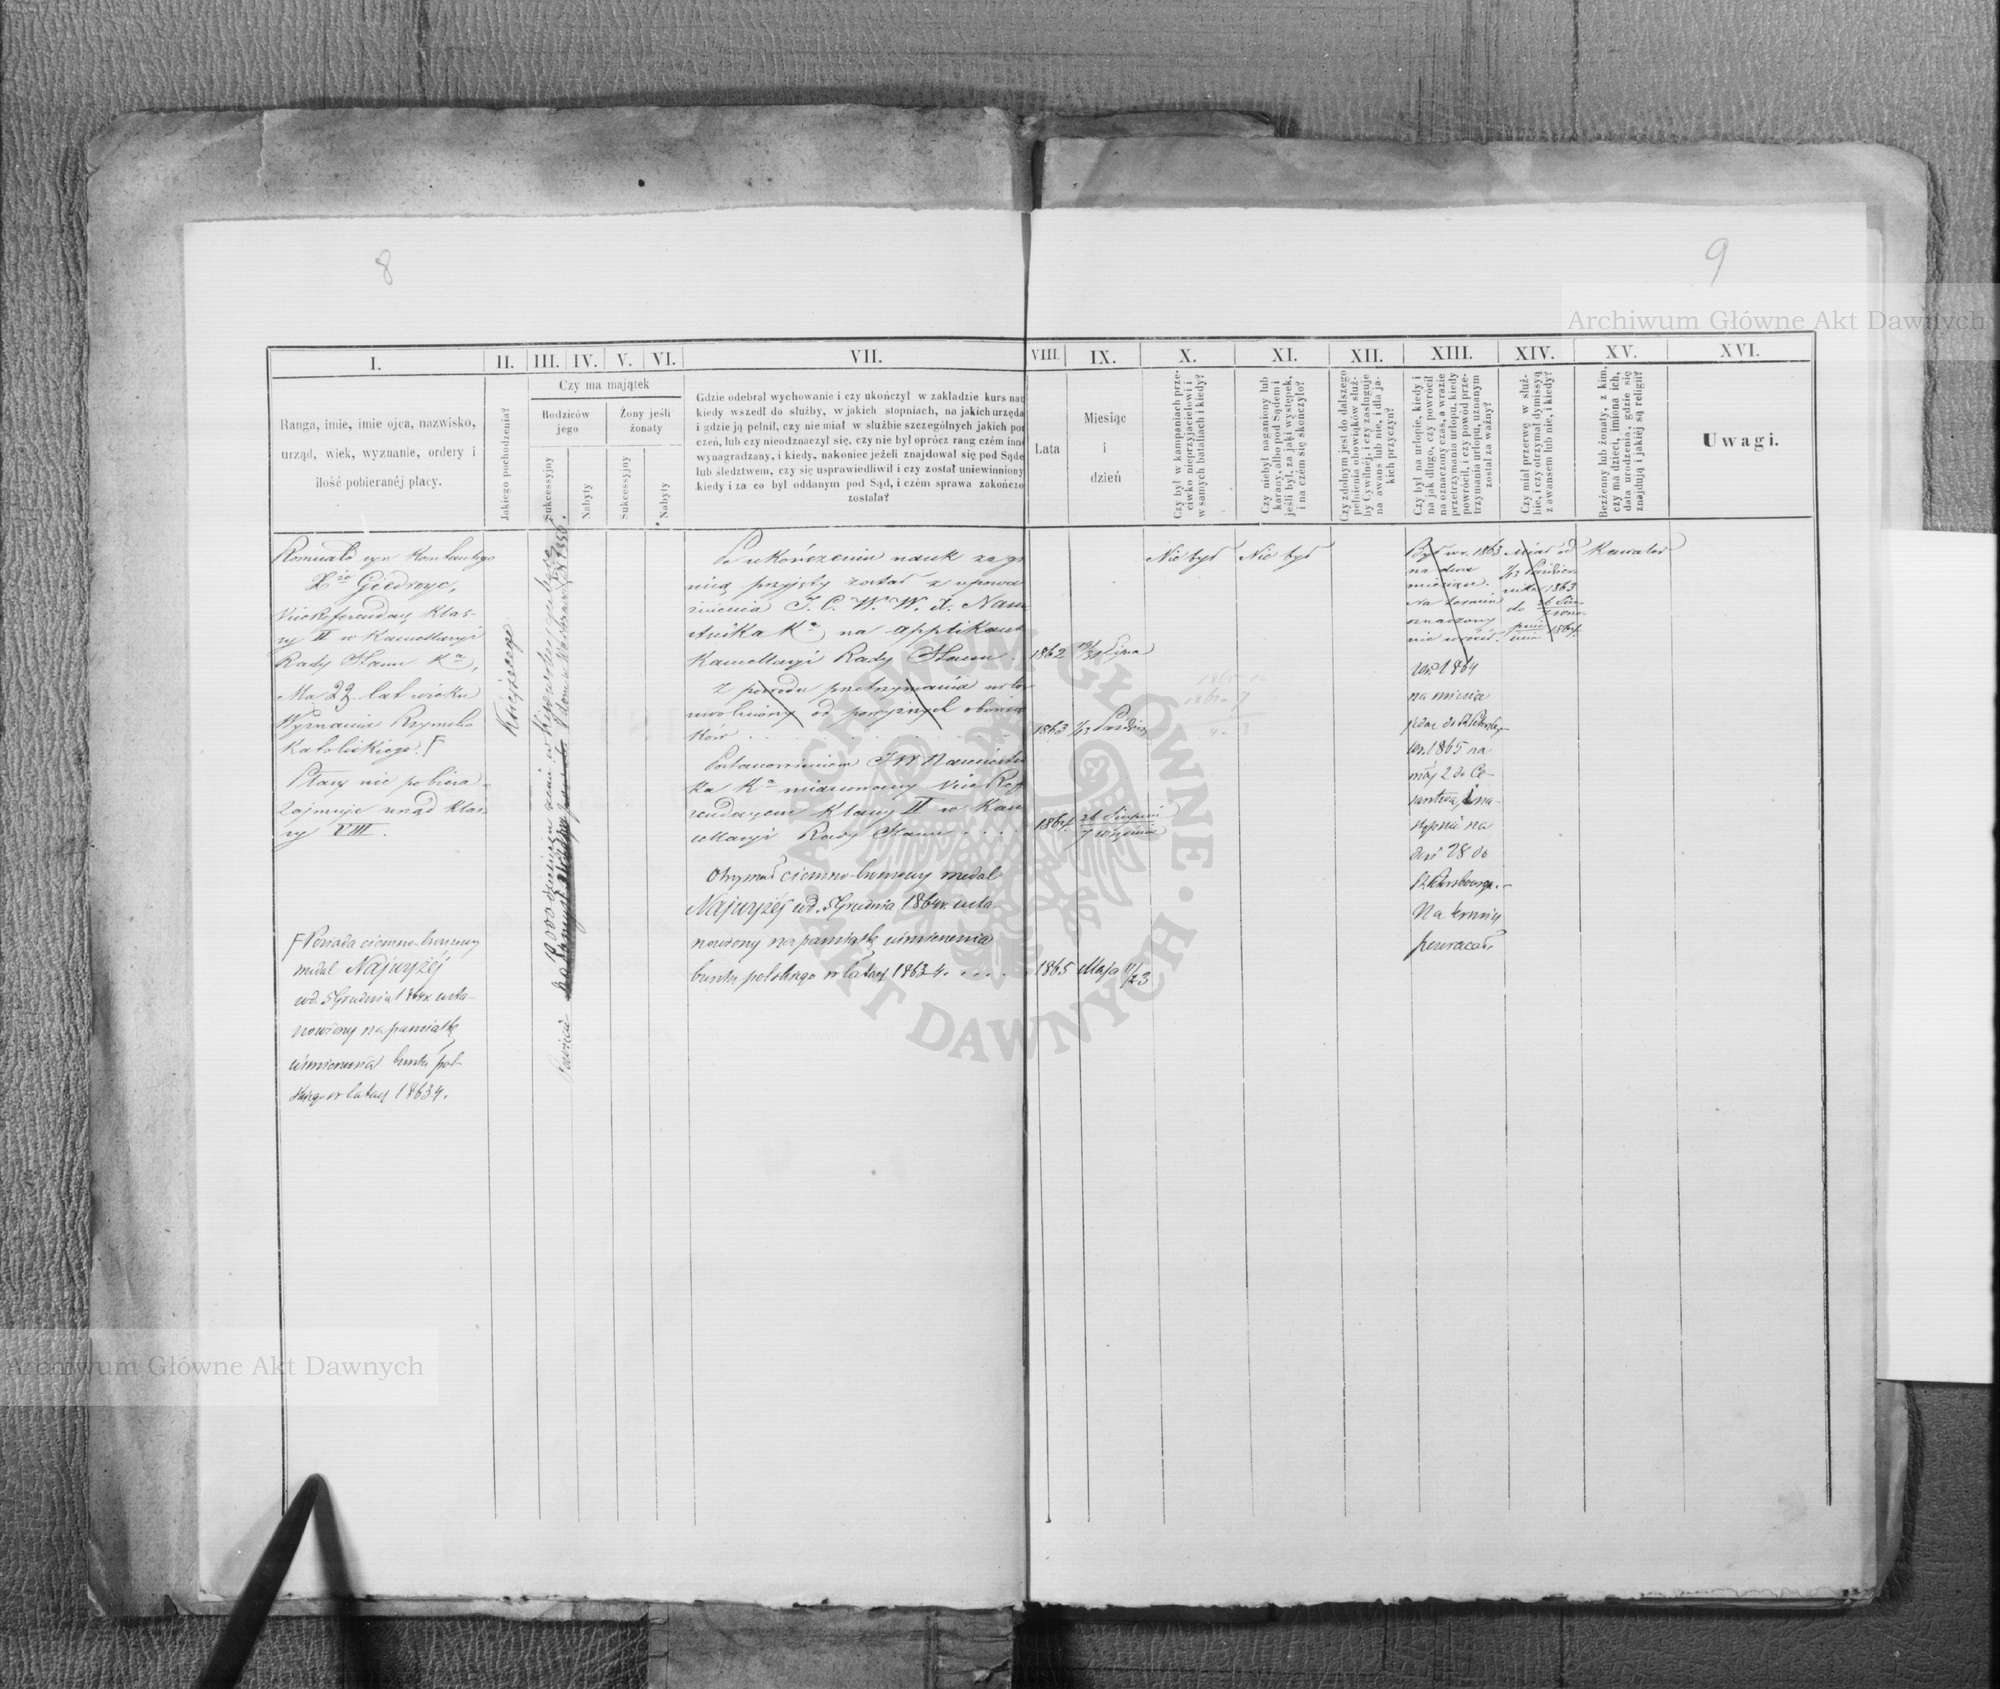 8
9
Archiwum Główne Akt Dawnych
I.
II.
III.
IV.
V.
VI.
VII.
VIII.
IX.
X.
XI.
XII.
XIII.
XIV.
XV.
XVI.
Ranga, imie, imie ojca, nazwisko,
urząd, wiek, wyznanie, ordery i
ilość pobieranéj płacy.
Jakiego pochodzenia?
Czy ma majątek
Rodziców
jego
Żony jeśli
żonaty
Sukcessyjny
Nabyty
Sukcessyjny
Nabyty
Gdzie odebrał wychowanie i czy ukończył w zakładzie kurs nau
kiedy wszedł do służby, w jakich stopniach, na jakich urzęda
i gdzie ją pełnił, czy nie miał w służbie szczególnych jakich po
czeń, lub czy nieodznaczył się, czy nie był oprócz rang czém inne
wynagradzany, i kiedy, nakoniec jeżeli znajdował się pod Sąde
lub śledztwem, czy się usprawiedliwił i czy został uniewinniony
kiedy i za co był oddanym pod Sąd, i czém sprawa zakończo
została?
Lata
Miesiąc
i
dzień
Czy był w kampaniach prze-
ciwko nieprzyjacielowi i
w samych bataliach i kiedy?
Czy niebył naganiony lub
karany, albo pod Sądem i
jeśli był, za jaki występek,
i na czém się skończyło?
Czy zdolnym jest do dalszego
pełnienia obowiąków służ-
by Cywilnéj, i czy zasługuje
na awans lub nie, i dla ja-
kich przyczyn?
Czy był na urlopie, kiedy i
na jak długo, czy powrócił
na oznaczony czas, a w razie
przetrzymania urlopu, kiedy
powrócił, i czy powód prze-
trzymania urlopu, uznanym
został za ważny?
Czy miał przerwę w służ-
bie, i czy otrzymał dymissyą
z awansem lub nie, i kiedy?
Bezżenny lub żonaty, z kim,
czy ma dzieci, imiona ich,
data urodzenia, gdzie się
znajdują i jakiéj są religii?
Uwagi.
Romuald syn Konstantego
Xże Giedroyc,
Vice Referendarz klas-
sy II w Kancellaryi
Rady Stanu Ka,
Ma 23 lat wieku
Wyznania Rzymsko
Katolickiego. F
Płacy nie pobiera
Zajmuje urząd klas-
sy VIII.
F Posiada ciemno-bronzowy
medal Najwyżéj
ud. 5 Grudnia 1864 r. usta-
nowiony na pamiątkę
uśmierzenia buntu pol-
skiego w latach 1863-4.
Książęcego
Po ukończeniu nauk za gr
nicą przyjęty został z upowa
żnienia J. C. W. W. X. Nam
stnika Ka na applikant
Kancellaryi Rady Stanu.
1862
Z powodu przetrzymania urlo
uwolniony od powyższych obowiąz
ków
1863
Postanowieniem JW Namiestni
ka Ka mianowany Vice Ref
rendarzem klassy II w Kan
cellaryi Rady Stanu
1864
26 Sierpnia
7 Września
Otrzymał ciemno-bronzowy medal
Najwyżéj ud. 5 Grudnia 1864 r. usta
nowiony na pamiątkę uśmierzenia
buntu polskiego w latach 1863-4.
1865 Maja 11/23
Nie był
Nie był
Był w r. 1863
na dwa
miesiące.
Na termin
oznaczony
nie wrócił.
W r. 1864
na miesiąc
W r. 1865 na
na-
stępnie na
dni 28 do
Petersburga.
Na termin
powracał.
Miał od
1863
do 26 Sier-
1864.
Kawaler
Archiwum Główne Akt Dawnych
ARCHIWUM GŁÓWNE · AKT DAWNYCH ·